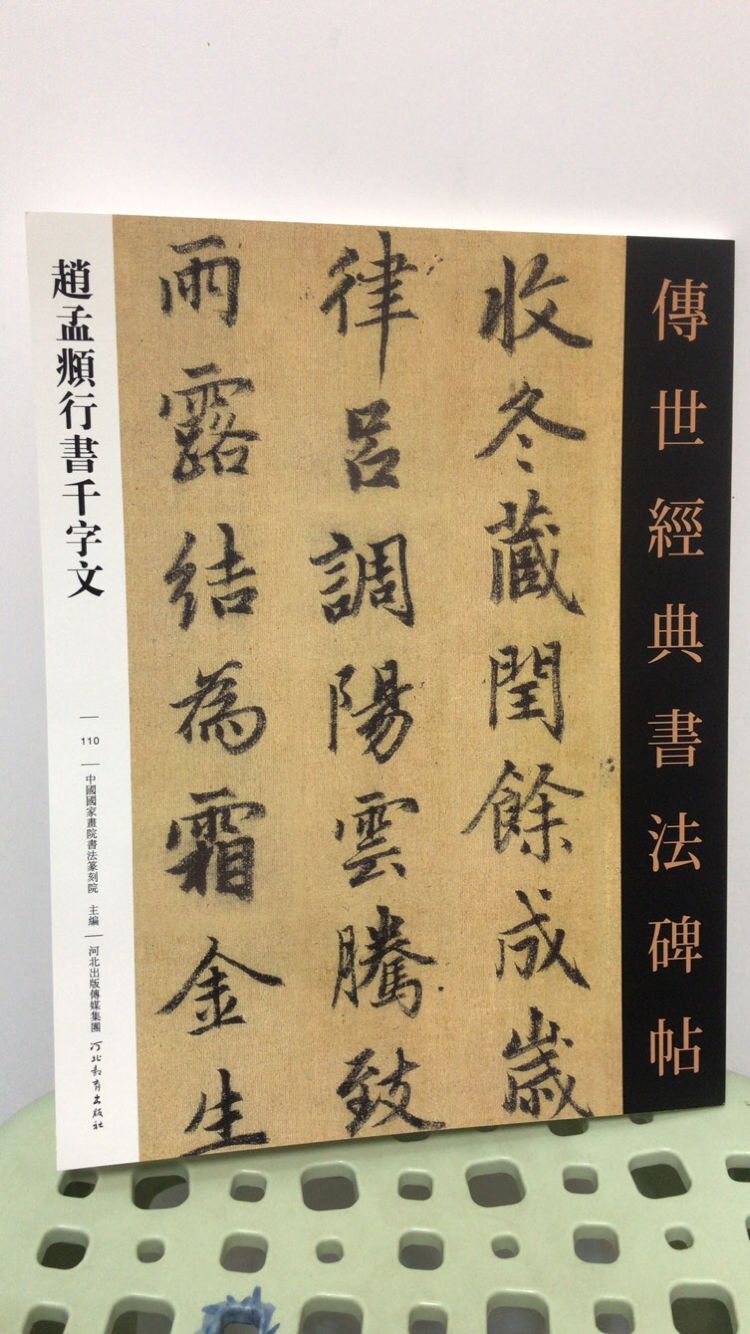 傳世經典書法碑帖
收冬藏閏餘成歲
律呂調陽雲騰致
雨露結為霜金生
趙孟頫行書千字文
110
中國國家畫院書法篆刻院 主編
河北出版傳媒集團
河北教育出版社